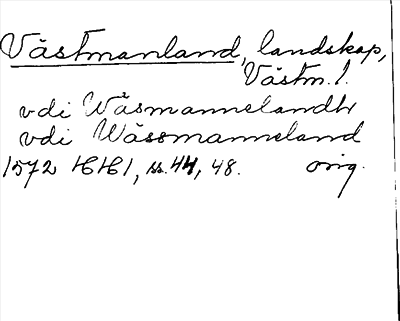 Västmanland, landskap,
Västm. l.
vdi Wäsmannelandh
vdi Wässmanneland
1572 HH1, ss. 44, 48. orig.